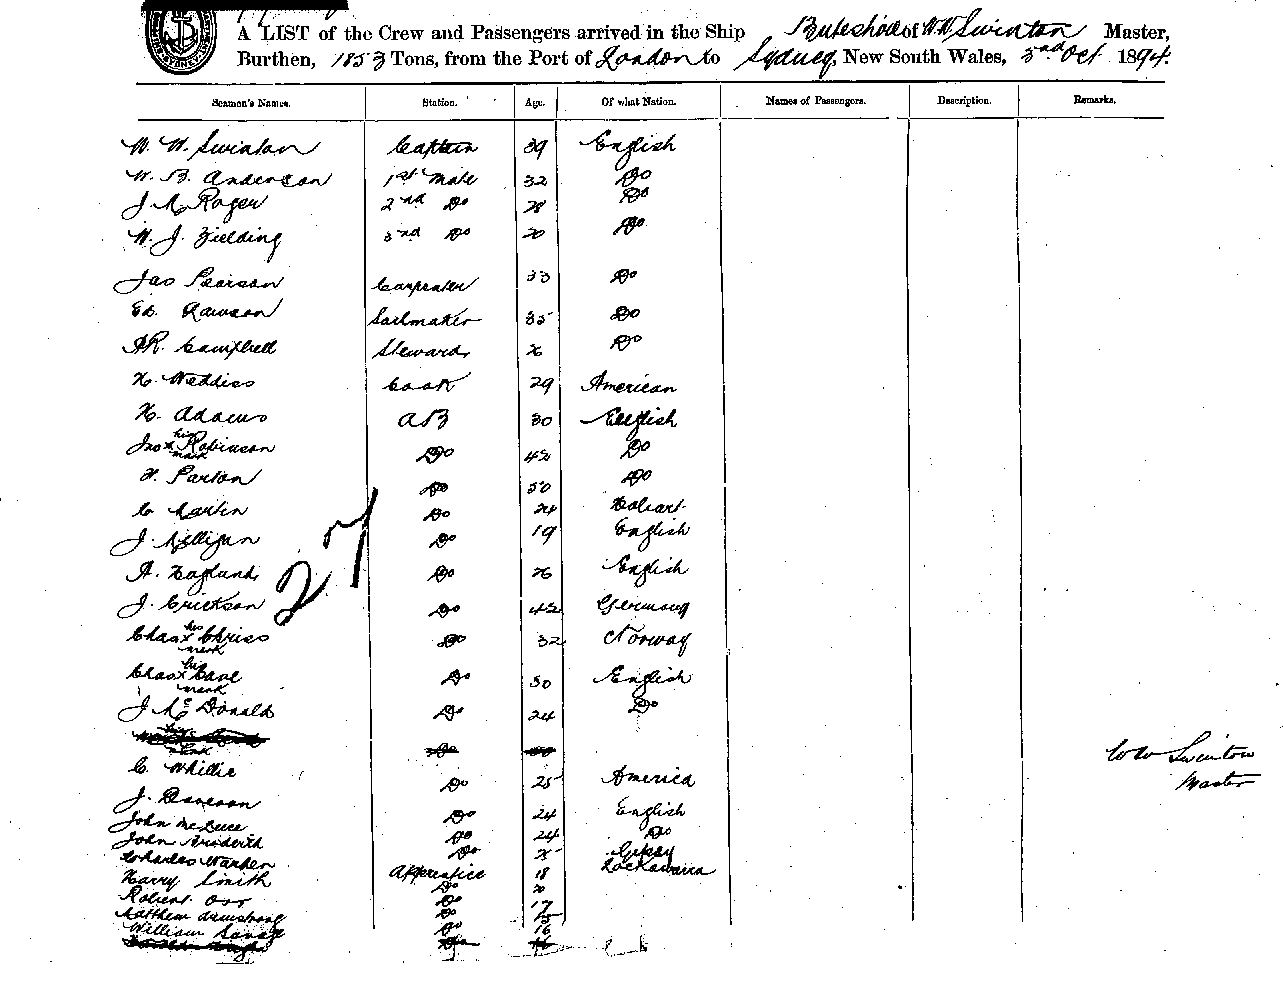 A LIST of the Crew and Passengers arrived in the Ship Buteshire of W. W. Swinton Master,
Burthen, 1853 Tons, from the Port of London to Sydney, New South Wales, 3rd Oct 1894.
Seamen's Names. Station. Age. Of what Nation. Names of Passengers. Description. Remarks.
W. W. Swinton Captain 39 English
W. B. Anderson 1st Mate 32 Do
J. Roger 2nd Do 28 Do
W. J. Fielding 3rd Do 20 Do
Jas Pearson Carpenter 33 Do
Ed. Rawson Sailmaker 35 Do
AR. Campbell Steward 26 Do
H. Weddiss Cook 29 American
H. Adams AB 30 English
Jno x Robinson Do 42 Do
his
mark
Parton Do 50 Do
C. Martin Do 24 Hobart
J. Milligan Do 19 English
A. Haglund Do 26 English
27
J. Erickson Do 42 Germany
Chas x Chriss Do 32 Norway
his
mark
Chas x Cane Do 30 English
his
mark
J. Mc Donald Do 24 Do
W W Swinton
Master
C. Whillie Do 25 America
J. Do 24 English
John Do 24 Do
John Do
Charles Apprentice 18
Harry Smith Do 20
Robert Orr Do 17
Matthew Armstrong Do
William Savage Do 16